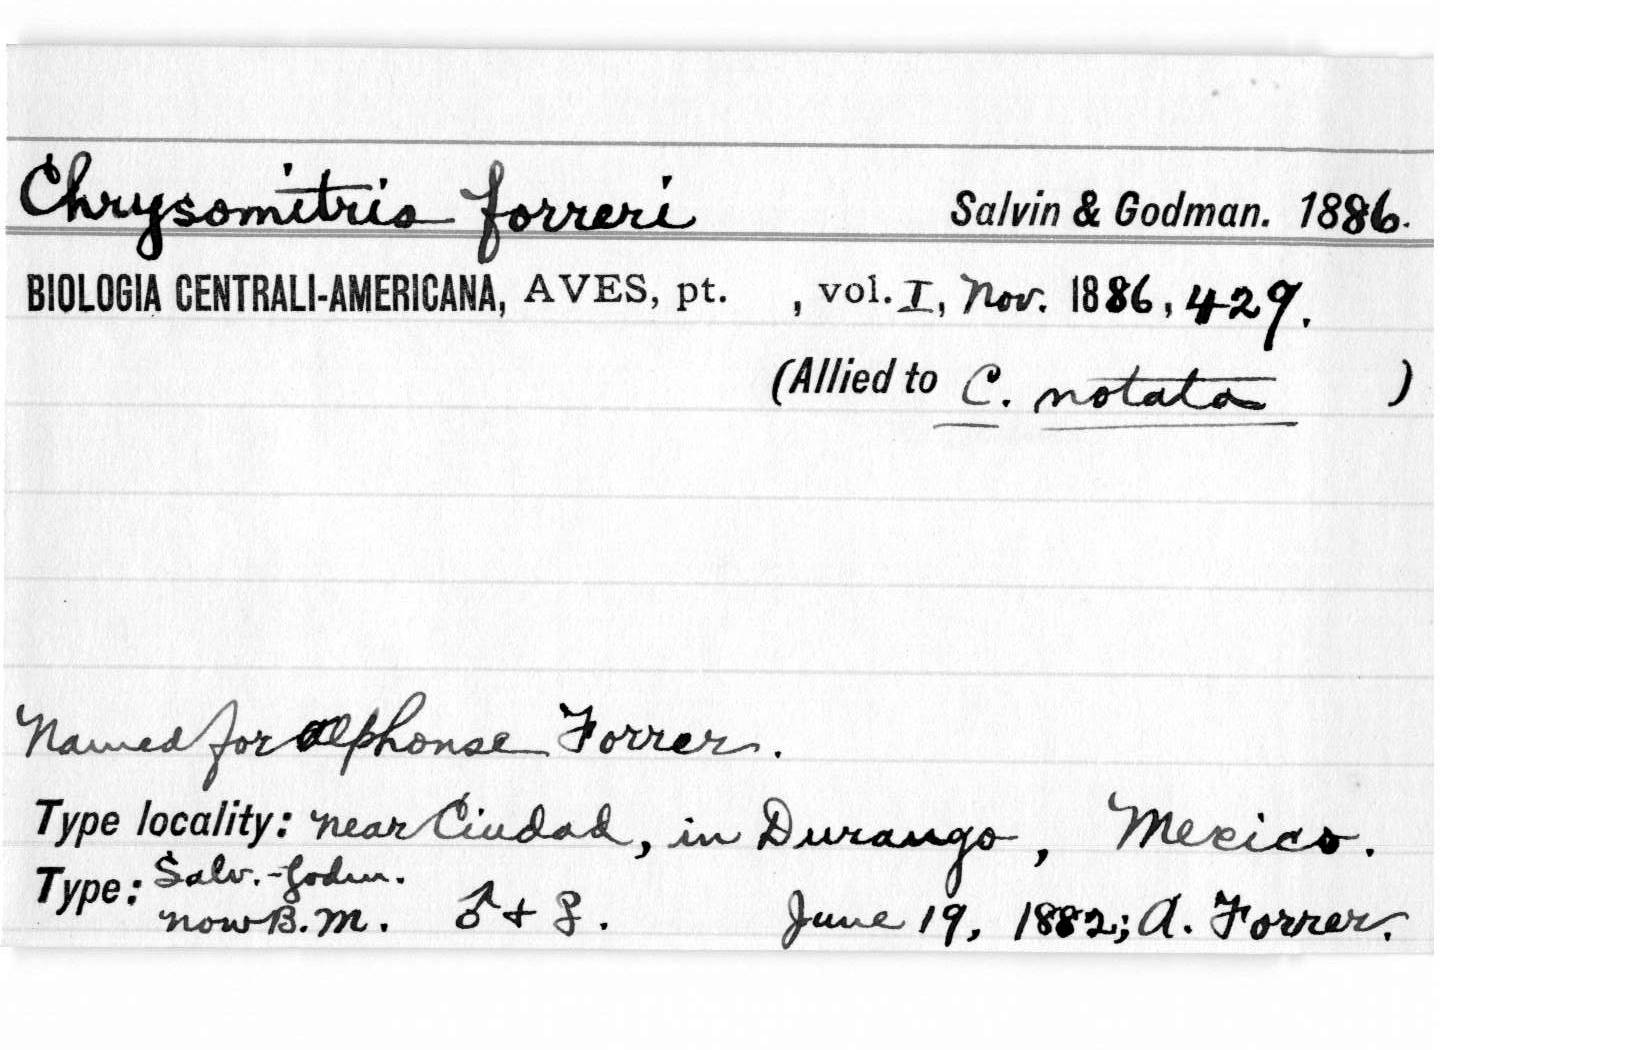 Chrysomitris forreri Salvin & Godman. 1886.
BIOLOGIA CENTRALI-AMERICANA, AVES, pt. , vol. I, Nov. 1886, 429.
(Allied to C. notata )
Named for Alphonse Forrer.
Type locality: near Ciudad, in Durango, Mexico.
Type: Salv.-Godm.
now B.M. ♂ + ♀. June 19, 1882; A. Forrer.